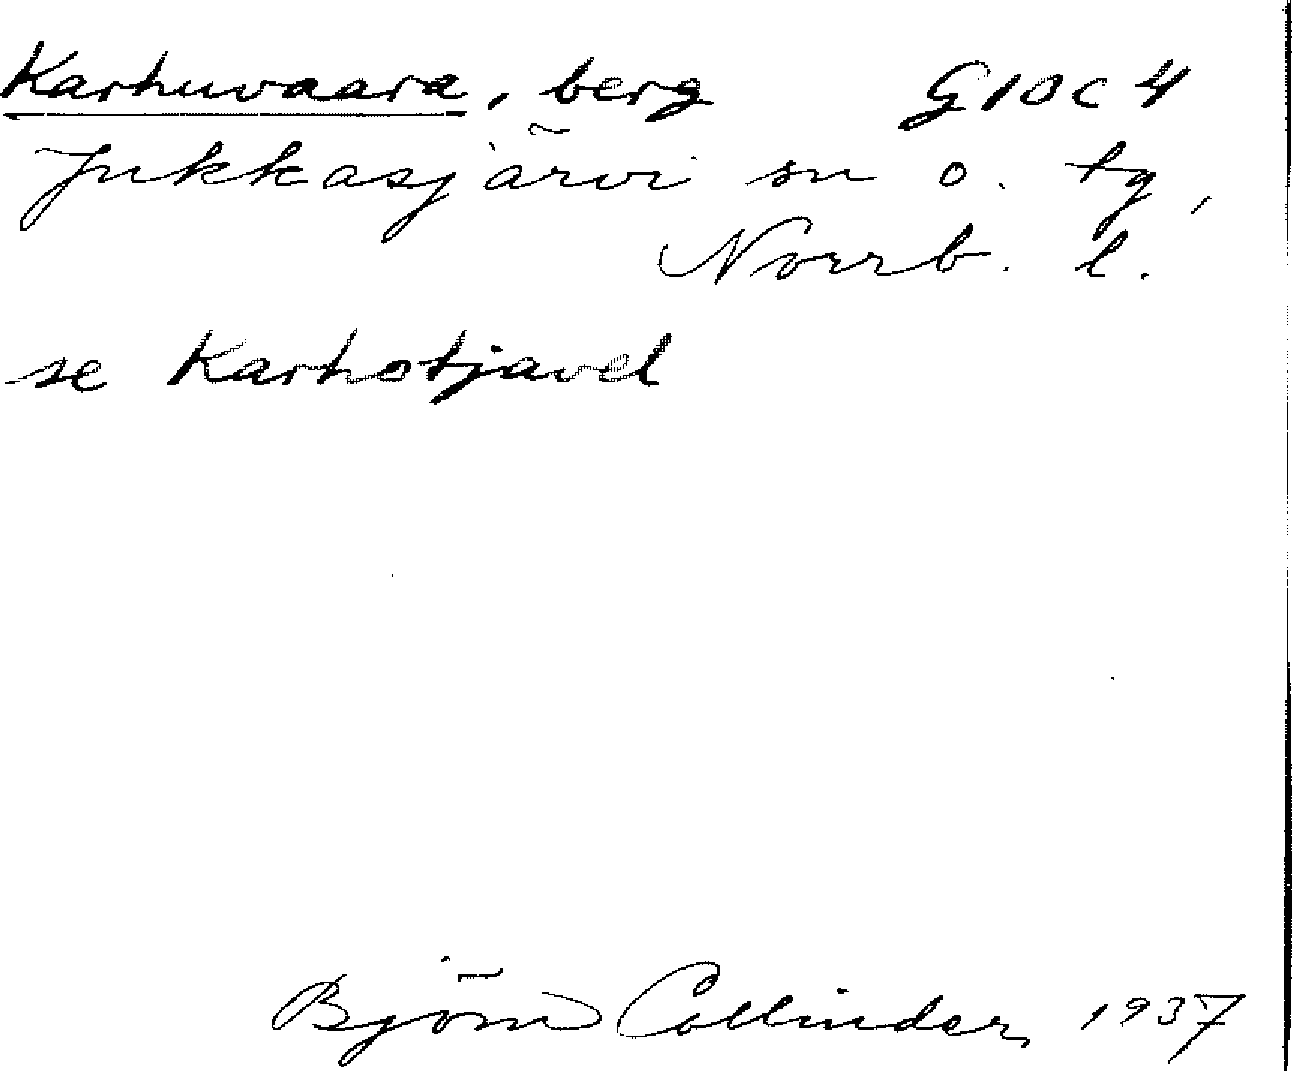 Karhuvaara, berg G10C4
Jukkasjärvi sn o. tg,
Norrb. l.
se Karhotjavel
Björn Collinder, 1937